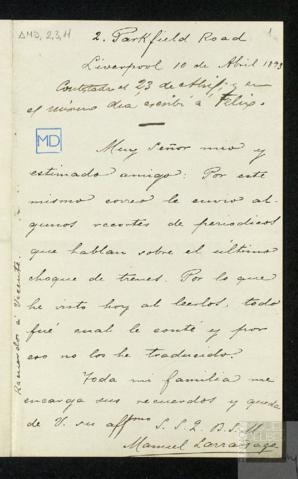 AMD, 2,3,11
1
2. Parkfield Road
Liverpool 10 de Abril 1893
Contestada el 23 de Abril, y en
el mismo dia escribí á Felix.
MD
Muy Señor mio y
estimado amigo: Por este
mismo correo le envio al-
gunos recortes de periodicos
que hablan sobre el último
choque de trenes. Por lo que
he visto hoy al leerlos, todo
fué cual le conté y por
eso no los he traducido.
Toda mi familia me
encarga sus recuerdos y queda
de V. su affmo
S. S. Q. B. S. M.
Manuel Larrañaga
Recuerdos á Vicente.